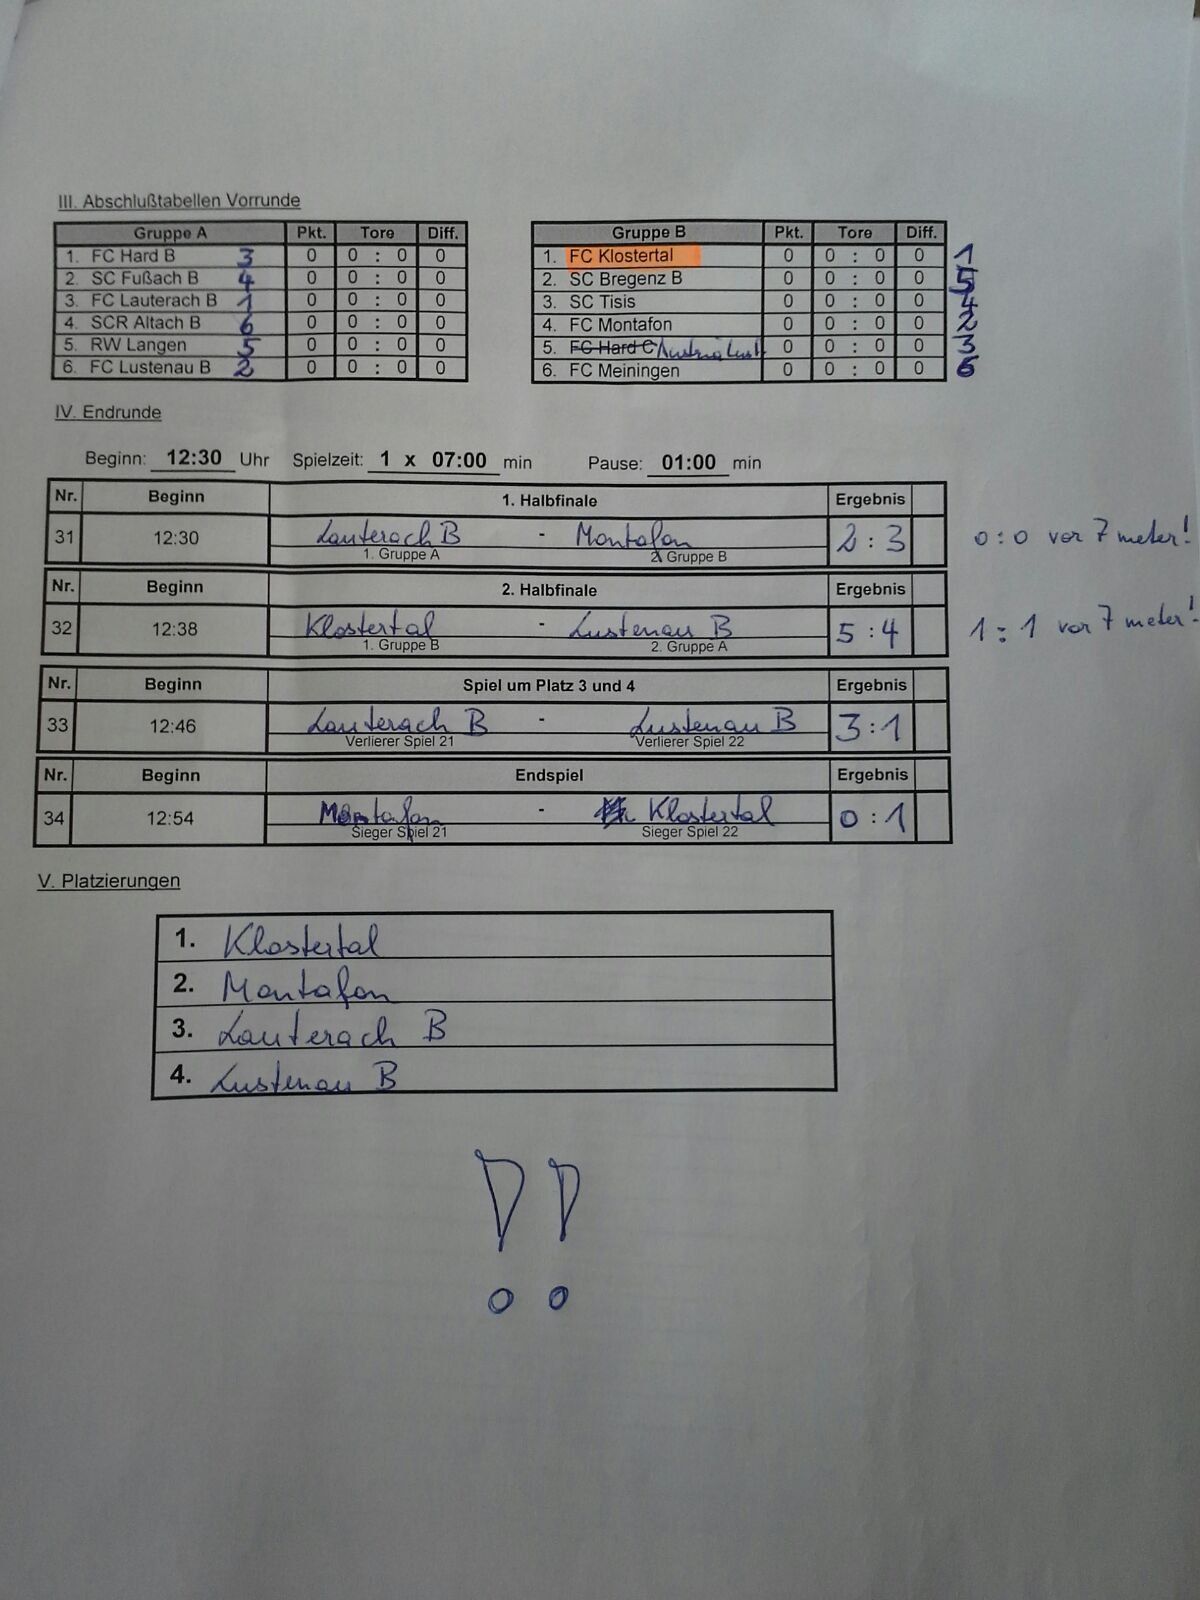 III. Abschlußtabellen Vorrunde
Gruppe A Pkt. Tore Diff.
1. FC Hard B 3 0 0 : 0 0
2. SC Fußach B 4 0 0 : 0 0
3. FC Lauterach B 1 0 0 : 0 0
4. SCR Altach B 6 0 0 : 0 0
5. RW Langen 5 0 0 : 0 0
6. FC Lustenau B 2 0 0 : 0 0
Gruppe B Pkt. Tore Diff.
1. FC Klostertal 0 0 : 0 0 1
2. SC Bregenz B 0 0 : 0 0 5
3. SC Tisis 0 0 : 0 0 4
4. FC Montafon 0 0 : 0 0 2
5. FC Hard C Austria Lust. 0 0 : 0 0 3
6. FC Meiningen 0 0 : 0 0 6
IV. Endrunde
Beginn: 12:30 Uhr Spielzeit: 1 x 07:00 min Pause: 01:00 min
Nr. Beginn 1. Halbfinale Ergebnis
31 12:30 Lauterach B - Montafon 2 : 3 0:0 vor 7 meter!
1. Gruppe A 2. Gruppe B
Nr. Beginn 2. Halbfinale Ergebnis
32 12:38 Klostertal - Lustenau B 5 : 4 1:1 vor 7 meter!
1. Gruppe B 2. Gruppe A
Nr. Beginn Spiel um Platz 3 und 4 Ergebnis
33 12:46 Lauterach B - Lustenau B 3:1
Verlierer Spiel 21 Verlierer Spiel 22
Nr. Beginn Endspiel Ergebnis
34 12:54 Montafon - Klostertal 0 : 1
Sieger Spiel 21 Sieger Spiel 22
V. Platzierungen
1. Klostertal
2. Montafon
3. Lauterach B
4. Lustenau B
!!